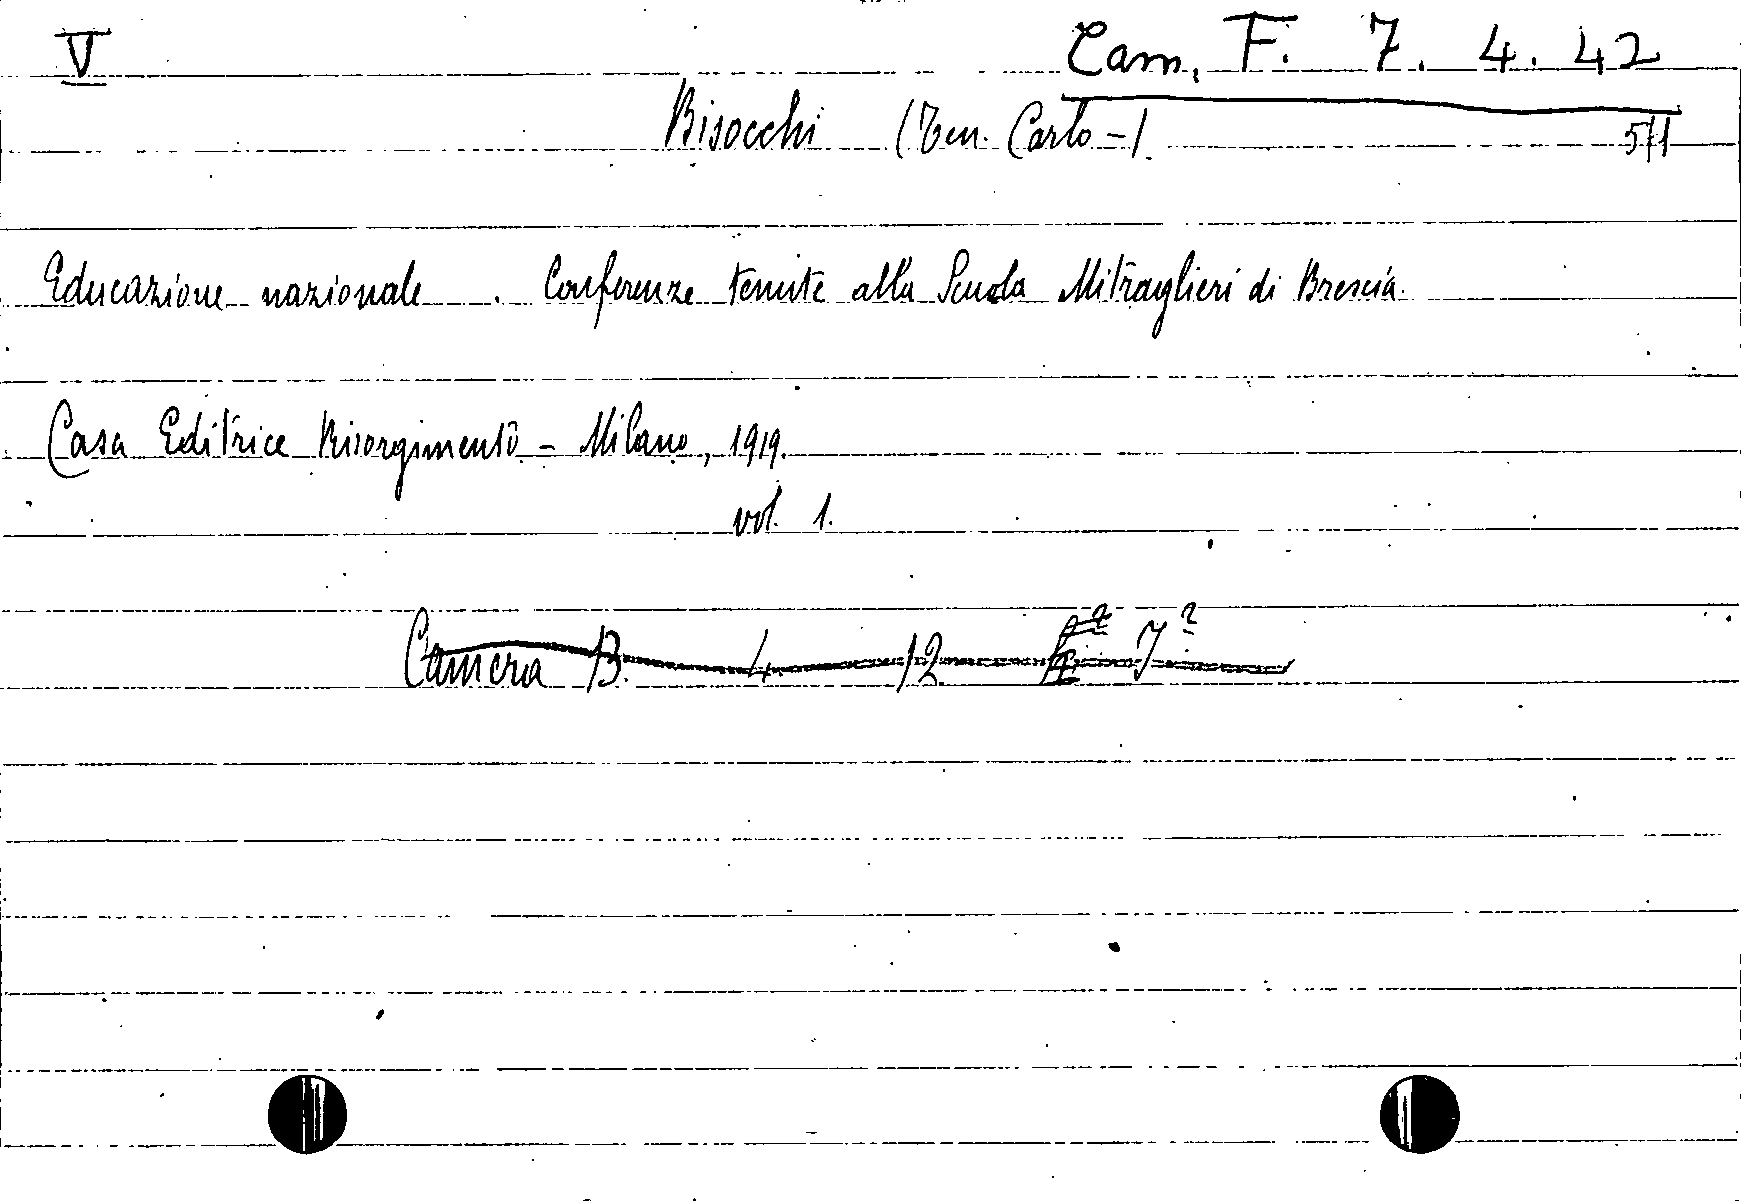 V
Cam. F. 7. 4. 42
Bisocchi (Ten. Carlo -)
571
Educazione nazionale. Conferenze tenute alla Scuola Mitraglieri di Brescia.
Casa Editrice Risorgimento - Milano, 1919.
vol. 1.
Camera B. 4. 12 7ª